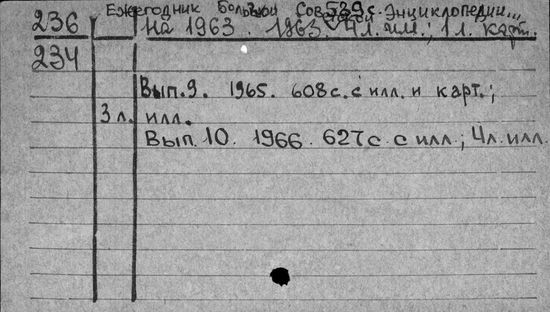 Ежегодник Большой Советской Энциклопедии...
236 На 1963. 1963. 539 с. 4 л. илл.; 1 л. карт.
234
Вып. 9. 1965. 608 с. с илл. и карт.;
3 л. илл.
Вып. 10. 1966. 627 с. с илл.; 4 л. илл.